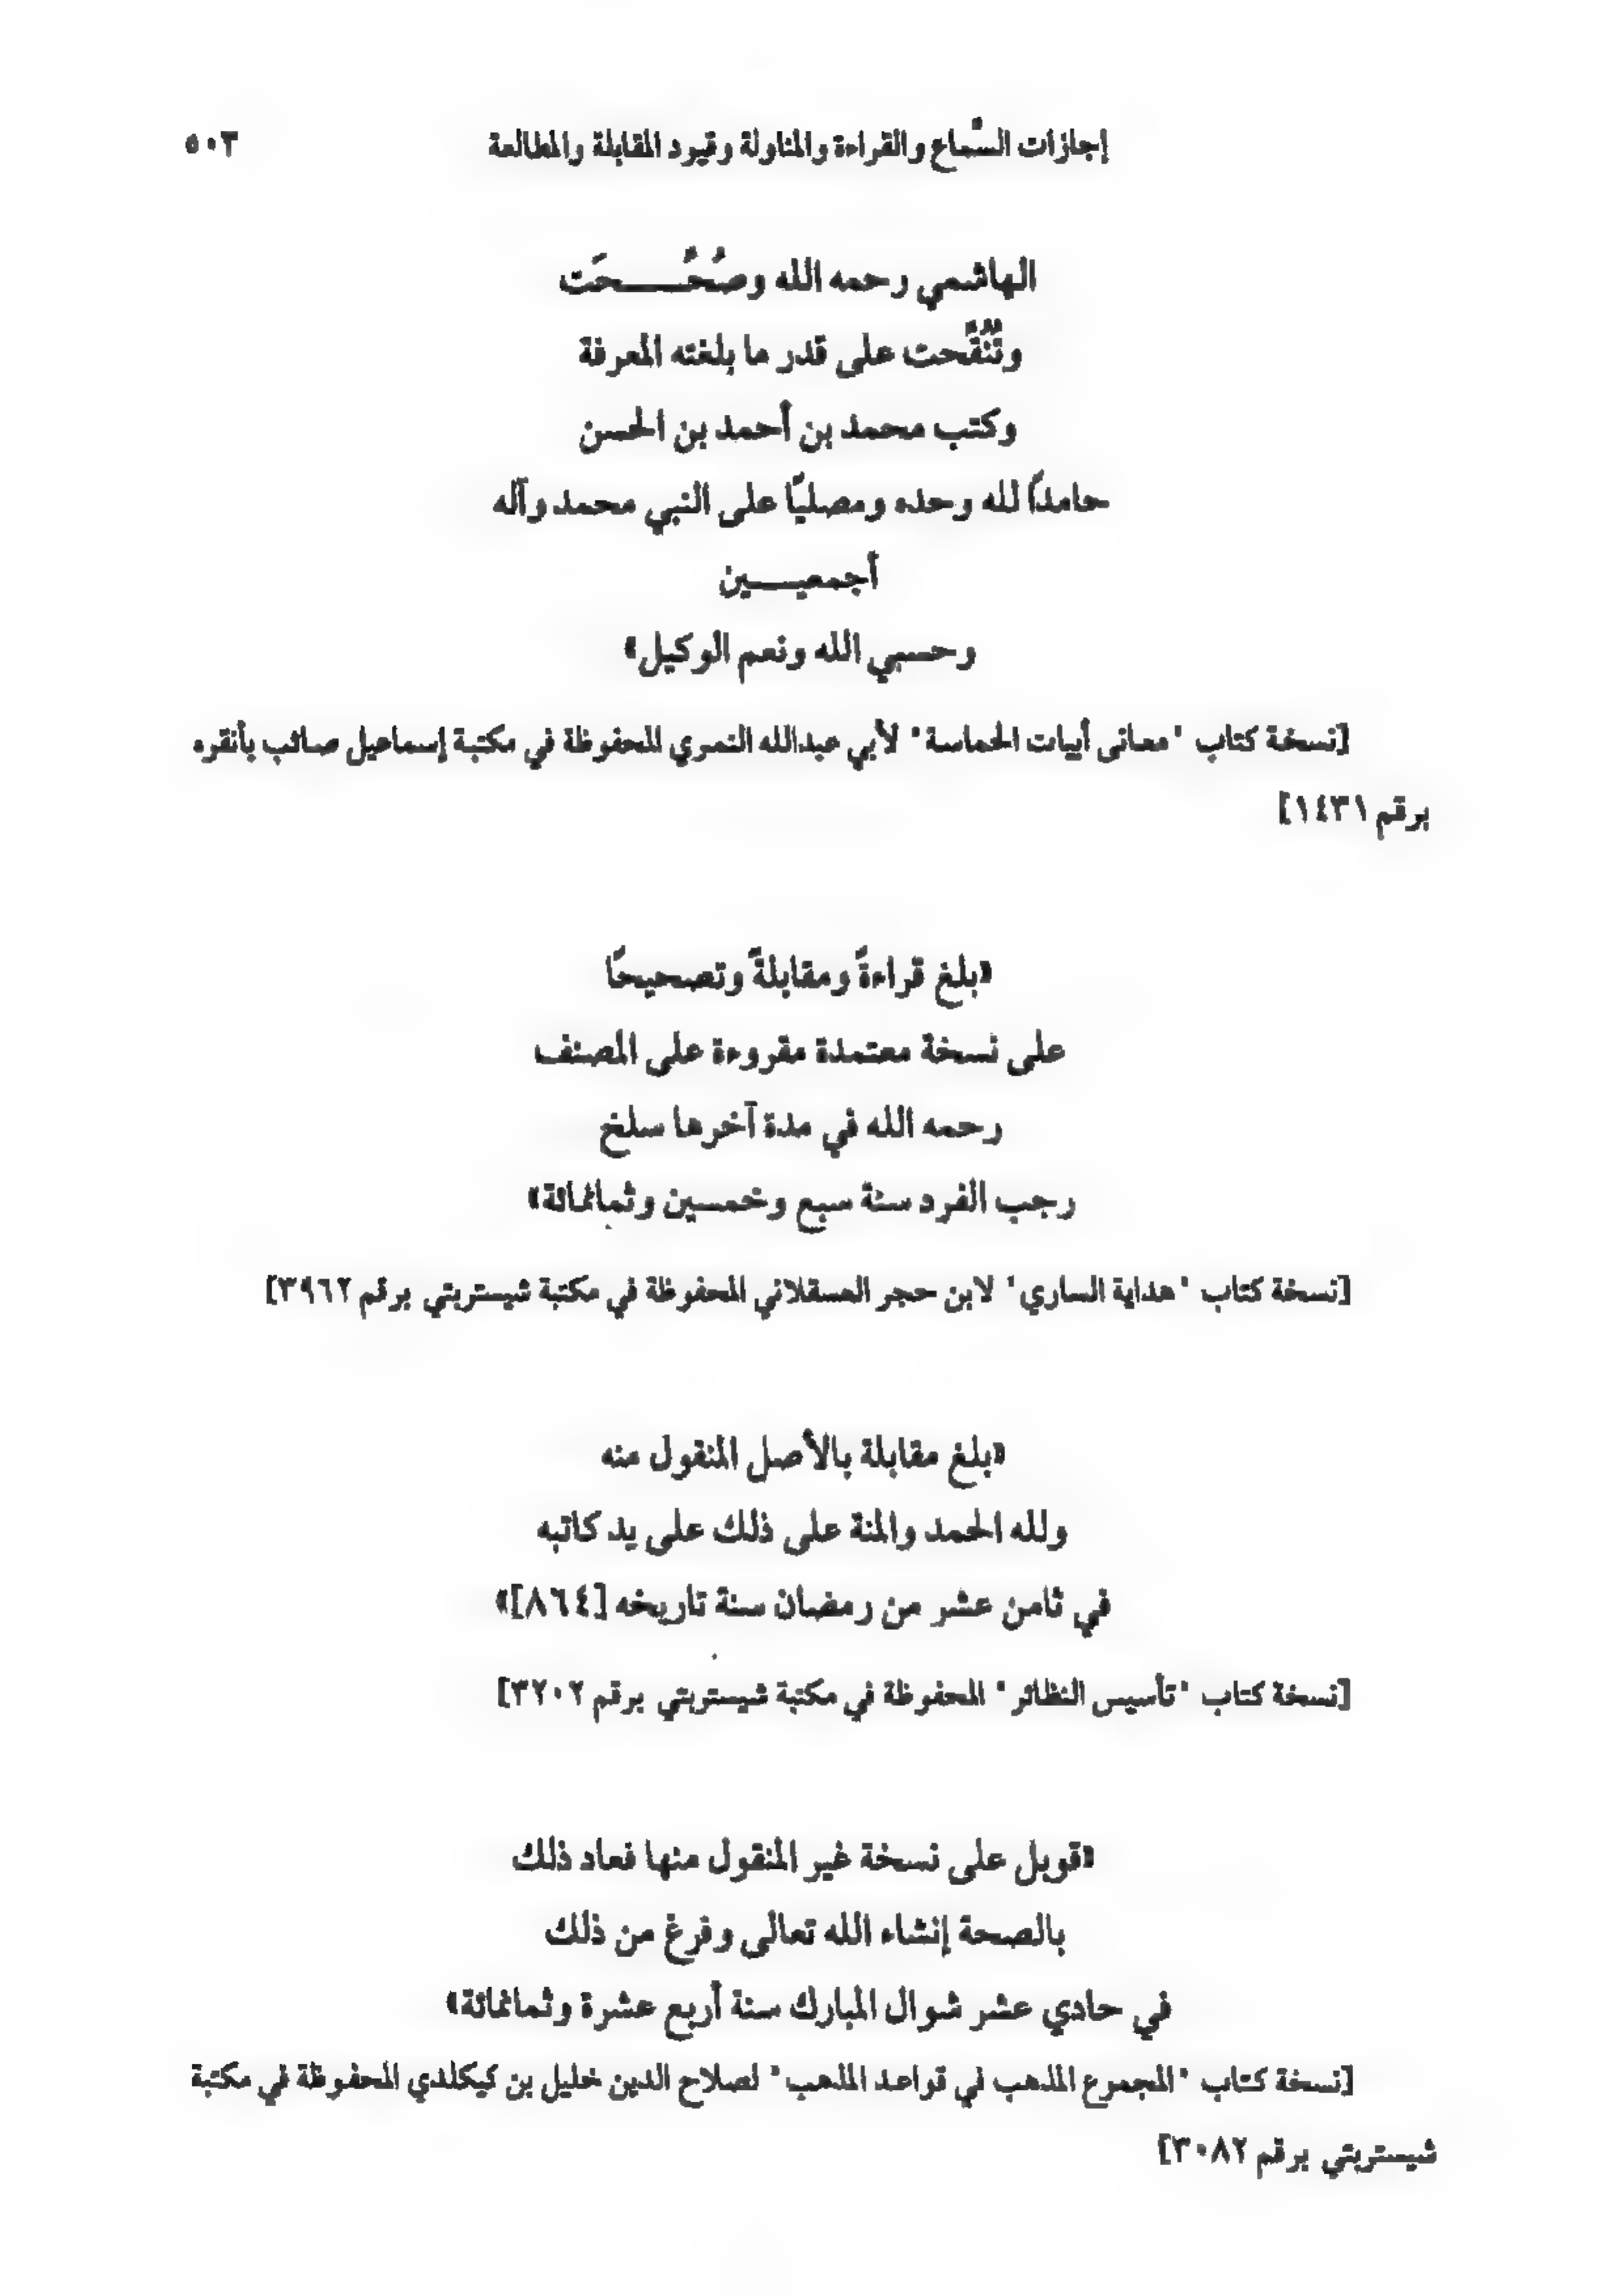 إجازات السَّماع والقراءة والمناولة وقيود المقابلة والمطالعة ٥٠٣
الهاشمي رحمه الله وصُحُــــحَت
وتُنُقَّحت على قدر ما بلغته المعرفة
وكتب محمد بن أحمد بن الحسن
حامدًا لله وحده ومصليًا على النبي محمد وآله
أجمعيــــين
وحسبي الله ونعم الوكيل»
[نسخة كتاب "معانى أبيات الحماسة" لأبي عبدالله النمري المحفوظة في مكتبة إسماعيل صائب بأنقره
برقم ١٤٣١]
«بلغ قراءةً ومقابلةً وتصحيحًا
على نسخة معتمدة مقروءة على المصنف
رحمه الله في مدة آخرها سلخ
رجب الفرد سنة سبع وخمسين وثمانمائة»
[نسخة كتاب "هداية الساري" لابن حجر العسقلاني المحفوظة في مكتبة شيستربتي برقم ٣٩٦٢]
«بلغ مقابلة بالأصل المنقول منه
ولله الحمد والمنة على ذلك على يد كاتبه
في ثامن عشر من رمضان سنة تاريخه [٨٦٤]»
[نسخة كتاب "تأسيس النظائر" المحفوظة في مكتبة شيستربتي برقم ٣٢٠٢]
«قوبل على نسخة غير المنقول منها فعاد ذلك
بالصحة إنشاء الله تعالى وفرغ من ذلك
في حادي عشر شوال المبارك سنة أربع عشرة وثمانمائة»
[نسخة كتاب "المجموع المذهب في قواعد المذهب" لصلاح الدين خليل بن كيكلدي المحفوظة في مكتبة
شيستربتي برقم ٣٠٨٢]